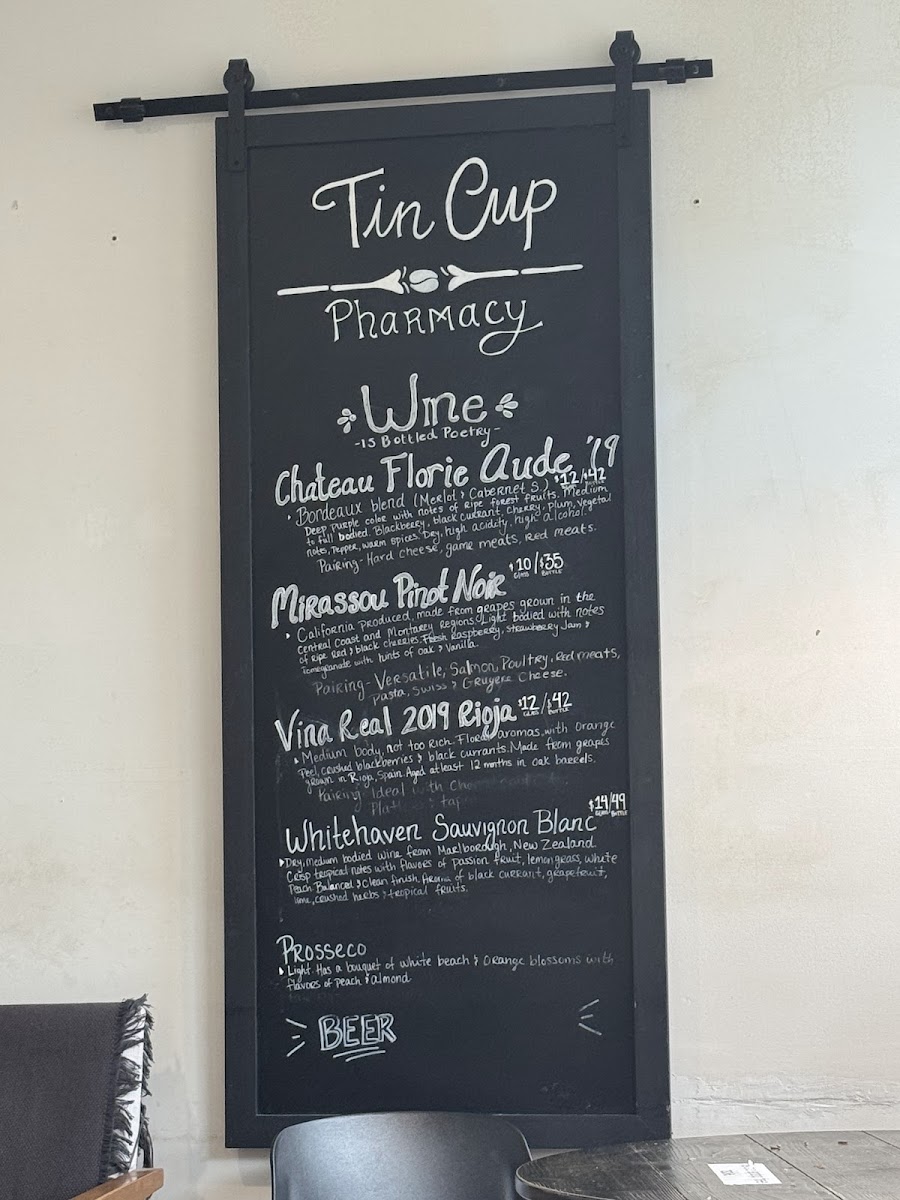 Tin Cup
Pharmacy
Wine
-is Bottled Poetry-
Chateau Florie Aude '19
$12/$42
Bottle
• Bordeaux blend (Merlot & Cabernet S.)
Deep purple color with notes of ripe forest fruits. Medium
to full bodied. Blackberry, black currant, cherry, plum, vegetal
notes, Pepper, warm spices. Dry, high acidity, high alcohol.
Pairing- Hard cheese, game meats, Red meats.
Mirassou Pinot Noir $10/$35
Glass Bottle
• California produced, made from grapes grown in the
Central Coast and Monterey Regions. Light bodied with notes
of Ripe Red & black cherries. Fresh Raspberry, strawberry Jam &
Pomegranate with hints of oak & Vanilla.
Pairing- Versatile, Salmon, Poultry, Red meats,
Pasta, Swiss & Gruyere Cheese.
Vina Real 2019 Rioja $12/$42
Glass Bottle
• Medium body, not too Rich. Floral aromas with Orange
Peel, crushed blackberries & black currants. Made from grapes
grown in Rioja, Spain. Aged at least 12 months in oak barrels.
Pairing: Ideal with
$14/49
Glass Bottle
Whitehaven Sauvignon Blanc
• Dry, Medium bodied wine from Marlborough, New Zealand
Crisp tropical notes with flavors of passion fruit, lemongrass, white
Peach. Balanced & Clean finish. Aroma of black currant, grapefruit,
lime, crushed herbs & tropical fruits.
Prosseco
• Light. Has a bouquet of white beach & Orange blossoms with
flavors of Peach & almond
BEER